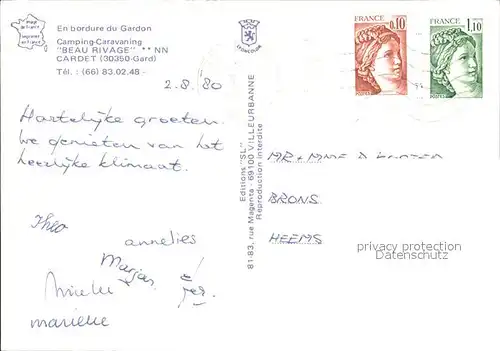 En bordure du Gardon
Camping-Caravaning
"BEAU RIVAGE" ** NN
CARDET (30350-Gard)
Tél. : (66) 83.02.48 -
2.8.'80
LEOGCOLOR
FRANCE
0,10
POSTES
FRANCE
1,10
POSTES
Hartelijke groeten.
We genieten van het
heerlijke klimaat.
Theo
annelies
Marjan
marielle
Editions "SL"
81-83, rue Magenta - 69100 VILLEURBANNE
Reproduction interdite
MR + MME
BRONS
HEEMS
privacy protection
Datenschutz